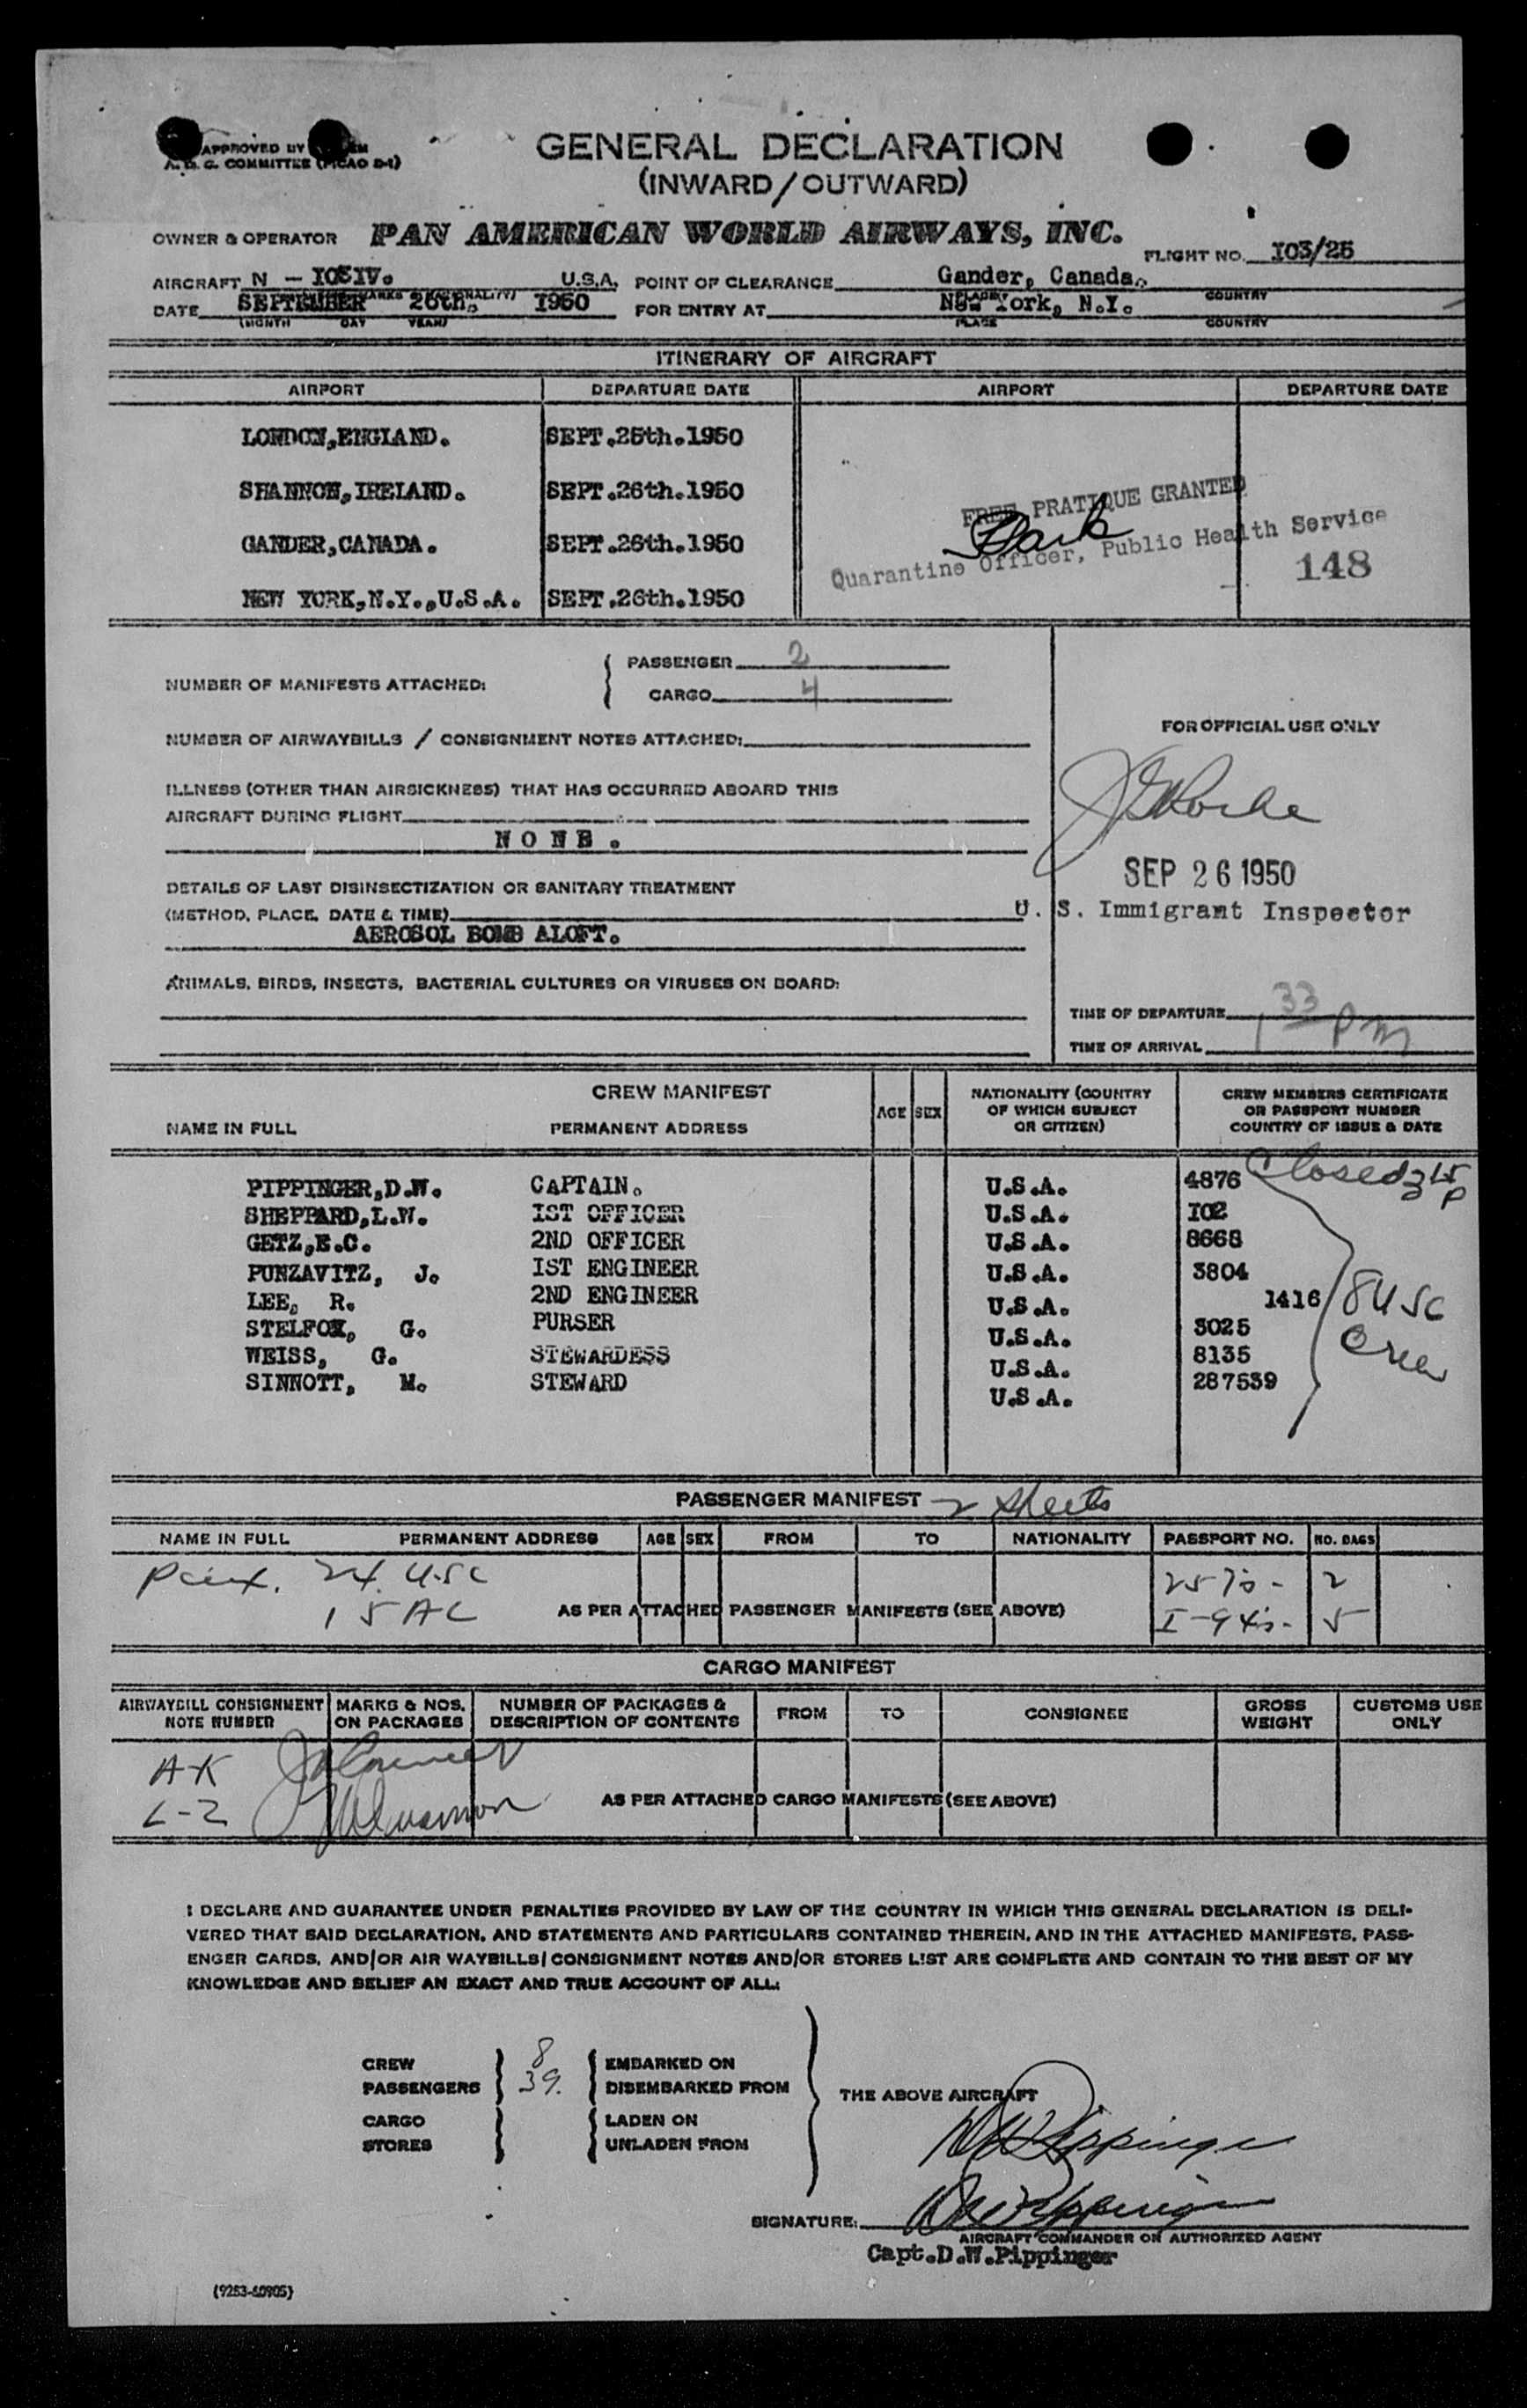 APPROVED BY
A. D. C. COMMITTEE (PICAO D-1)
GENERAL DECLARATION
(INWARD/OUTWARD)
OWNER & OPERATOR PAN AMERICAN WORLD AIRWAYS, INC.
FLIGHT NO. I03/25
AIRCRAFT N - U.S.A. POINT OF CLEARANCE Gander, Canada.
PLACE COUNTRY
DATE SEPTEMBER 26th, 1950 FOR ENTRY AT New York, N.Y.
(MONTH DAY YEAR) PLACE COUNTRY
ITINERARY OF AIRCRAFT
AIRPORT DEPARTURE DATE AIRPORT DEPARTURE DATE
LONDON,ENGLAND. SEPT.25th.1950
SHANNON,IRELAND. SEPT.26th.1950
FREE PRATIQUE GRANTED
GANDER,CANADA. SEPT.26th.1950
Quarantine Officer, Public Health Service
148
NEW YORK,N.Y.,U.S.A. SEPT.26th.1950
NUMBER OF MANIFESTS ATTACHED:
PASSENGER 2
CARGO 4
NUMBER OF AIRWAYBILLS / CONSIGNMENT NOTES ATTACHED:
FOR OFFICIAL USE ONLY
ILLNESS (OTHER THAN AIRSICKNESS) THAT HAS OCCURRED ABOARD THIS
AIRCRAFT DURING FLIGHT
NONE.
SEP 26 1950
U. S. Immigrant Inspector
DETAILS OF LAST DISINSECTIZATION OR SANITARY TREATMENT
(METHOD, PLACE, DATE & TIME)
AEROSOL BOMB ALOFT.
ANIMALS, BIRDS, INSECTS, BACTERIAL CULTURES OR VIRUSES ON BOARD:
TIME OF DEPARTURE
TIME OF ARRIVAL 1 33 PM
CREW MANIFEST
NAME IN FULL PERMANENT ADDRESS AGE SEX
NATIONALITY (COUNTRY
OF WHICH SUBJECT
OR CITIZEN)
CREW MEMBERS CERTIFICATE
OR PASSPORT NUMBER
COUNTRY OF ISSUE & DATE
PIPPINGER,D.W. CAPTAIN. U.S.A. 4876
SHEPPARD,L.W. IST OFFICER U.S.A. I02
GETZ,E.C. 2ND OFFICER U.S.A. 8668
PUNZAVITZ, J. IST ENGINEER U.S.A. 3804
LEE, R. 2ND ENGINEER U.S.A. 1416
STELFOX, G. PURSER U.S.A. 3025
WEISS, G. STEWARDESS U.S.A. 8135
SINNOTT, M. STEWARD U.S.A. 287539
Closed 3 45 P
8 USC
Crew
PASSENGER MANIFEST - 2 sheets
NAME IN FULL PERMANENT ADDRESS AGE SEX FROM TO NATIONALITY PASSPORT NO. NO. BAGS
24 USC 2
15 AC I-94's - 5
AS PER ATTACHED PASSENGER MANIFESTS (SEE ABOVE)
CARGO MANIFEST
AIRWAYBILL CONSIGNMENT
NOTE NUMBER
MARKS & NOS.
ON PACKAGES
NUMBER OF PACKAGES &
DESCRIPTION OF CONTENTS
FROM TO CONSIGNEE
GROSS
WEIGHT
CUSTOMS USE
ONLY
A-K
L-Z
AS PER ATTACHED CARGO MANIFESTS (SEE ABOVE)
I DECLARE AND GUARANTEE UNDER PENALTIES PROVIDED BY LAW OF THE COUNTRY IN WHICH THIS GENERAL DECLARATION IS DELI-
VERED THAT SAID DECLARATION, AND STATEMENTS AND PARTICULARS CONTAINED THEREIN, AND IN THE ATTACHED MANIFESTS, PASS-
ENGER CARDS, AND/OR AIR WAYBILLS/CONSIGNMENT NOTES AND/OR STORES LIST ARE COMPLETE AND CONTAIN TO THE BEST OF MY
KNOWLEDGE AND BELIEF AN EXACT AND TRUE ACCOUNT OF ALL:
CREW 8 EMBARKED ON
PASSENGERS 39. DISEMBARKED FROM
THE ABOVE AIRCRAFT
CARGO LADEN ON
STORES UNLADEN FROM
DW Pippinger
SIGNATURE: DW Pippinger
AIRCRAFT COMMANDER OR AUTHORIZED AGENT
Capt.D.W.Pippinger
(9253-40905)